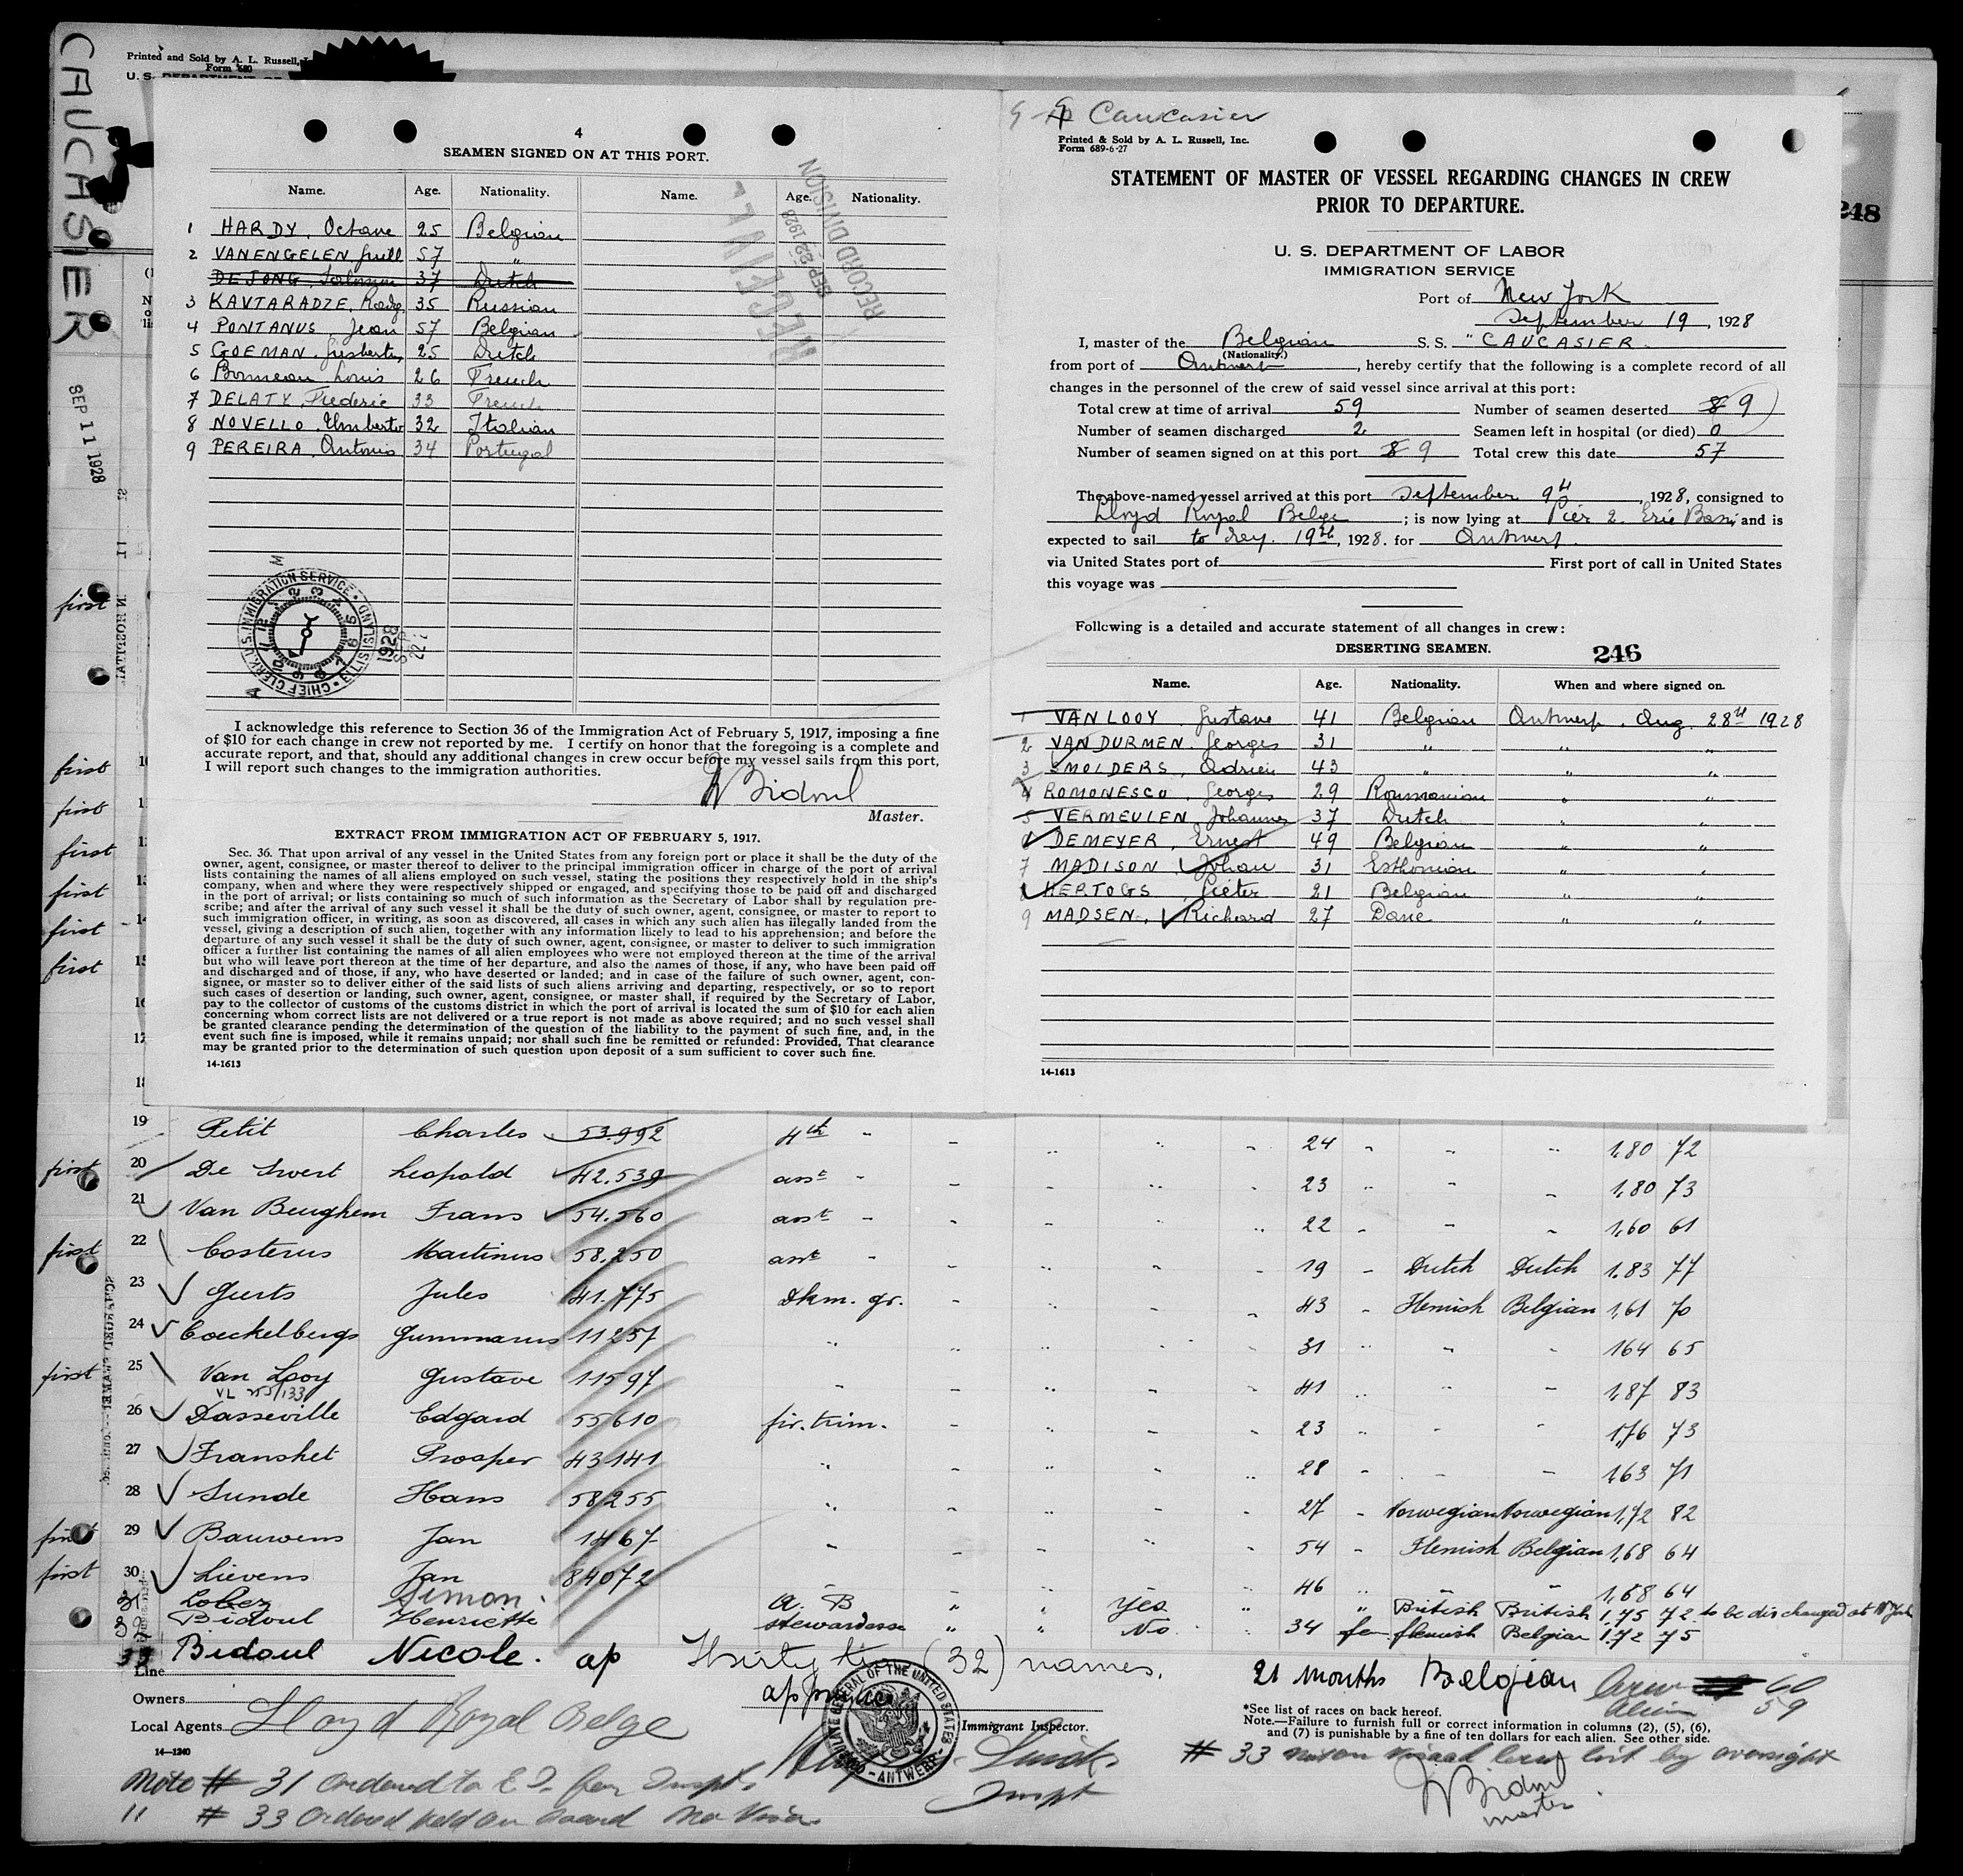 CAUCASIER
SEP 11 1928
Printed and Sold by A. L. Russell,
Form 680
U. S. DEPARTMENT OF
4
SEAMEN SIGNED ON AT THIS PORT.
Name. Age. Nationality. Name. Age. Nationality.
RECEIVED
SEP 22 1928
RECORD DIVISION
1 HARDY, Octave 25 Belgian
2 VANENGELEN, 57 "
DE JONG, 37 Dutch
3 KAVTARADZE, 35 Russian
4 PONTANUS, Jean 57 Belgian
5 GOEMAN, 25 Dutch
6 Louis 26 French
7 DELATY, Frederic 33 French
8 NOVELLO, Umberto 32 Italian
9 PEREIRA, Antonio 34 Portugal
CHIEF CLERK U.S. IMMIGRATION SERVICE • ELLIS ISLAND •
1928
SEP
22
I acknowledge this reference to Section 36 of the Immigration Act of February 5, 1917, imposing a fine
of $10 for each change in crew not reported by me. I certify on honor that the foregoing is a complete and
accurate report, and that, should any additional changes in crew occur before my vessel sails from this port,
I will report such changes to the immigration authorities.
Bidoul
Master.
EXTRACT FROM IMMIGRATION ACT OF FEBRUARY 5, 1917.
Sec. 36. That upon arrival of any vessel in the United States from any foreign port or place it shall be the duty of the
owner, agent, consignee, or master thereof to deliver to the principal immigration officer in charge of the port of arrival
lists containing the names of all aliens employed on such vessel, stating the positions they respectively hold in the ship's
company, when and where they were respectively shipped or engaged, and specifying those to be paid off and discharged
in the port of arrival; or lists containing so much of such information as the Secretary of Labor shall by regulation pre-
scribe; and after the arrival of any such vessel it shall be the duty of such owner, agent, consignee, or master to report to
such immigration officer, in writing, as soon as discovered, all cases in which any such alien has illegally landed from the
vessel, giving a description of such alien, together with any information likely to lead to his apprehension; and before the
departure of any such vessel it shall be the duty of such owner, agent, consignee, or master to deliver to such immigration
officer a further list containing the names of all alien employees who were not employed thereon at the time of the arrival
but who will leave port thereon at the time of her departure, and also the names of those, if any, who have been paid off
and discharged and of those, if any, who have deserted or landed; and in case of the failure of such owner, agent, con-
signee, or master so to deliver either of the said lists of such aliens arriving and departing, respectively, or so to report
such cases of desertion or landing, such owner, agent, consignee, or master shall, if required by the Secretary of Labor,
pay to the collector of customs of the customs district in which the port of arrival is located the sum of $10 for each alien
concerning whom correct lists are not delivered or a true report is not made as above required; and no such vessel shall
be granted clearance pending the determination of the question of the liability to the payment of such fine, and, in the
event such fine is imposed, while it remains unpaid; nor shall such fine be remitted or refunded: Provided, That clearance
may be granted prior to the determination of such question upon deposit of a sum sufficient to cover such fine.
14-1613
Caucasier
Printed & Sold by A. L. Russell, Inc.
Form 689-6-27
STATEMENT OF MASTER OF VESSEL REGARDING CHANGES IN CREW
PRIOR TO DEPARTURE.
U. S. DEPARTMENT OF LABOR
IMMIGRATION SERVICE
248
Port of New York
September 19, 1928
I, master of the Belgian S. S. "CAUCASIER.
(Nationality.)
from port of Antwerp, hereby certify that the following is a complete record of all
changes in the personnel of the crew of said vessel since arrival at this port:
Total crew at time of arrival 59 Number of seamen deserted 8 9
Number of seamen discharged 2 Seamen left in hospital (or died) 0
Number of seamen signed on at this port 8 9 Total crew this date 57
The above-named vessel arrived at this port September 9th, 1928, consigned to
Lloyd Royal Belge; is now lying at Pier 2. Erie Basin, and is
expected to sail to day. 19th, 1928. for Antwerp.
via United States port of First port of call in United States
this voyage was
Following is a detailed and accurate statement of all changes in crew:
DESERTING SEAMEN. 246
Name. Age. Nationality. When and where signed on.
1 VAN LOOY, Gustave 41 Belgian Antwerp. Aug. 28th 1928
2 VAN DURMEN, Georges 31 " " "
3 SMOLDERS, Adrien 43 " " "
4 ROMONESCO, Georges 29 Roumanian " "
5 VERMEULEN, Johannes 37 Dutch " "
6 DEMEYER, Ernest 49 Belgian " "
7 MADISON, Johan 31 Esthonian " "
8 HERTOGS, Pieter 21 Belgian " "
9 MADSEN, Richard 27 Dane " "
14-1613
first
first
first
first
first
first
first
19 Petit Charles 53.992 4th " 24 1,80 72
first 20 De Swert Leopold 42.539 asst " 23 1,80 73
21 Van Beughem Frans 54.560 asst 22 1,60 61
first 22 Costerus Martinus 58.250 asst 19 Dutch Dutch 1.83 77
23 Geerts Jules 41.775 dkm. gr. 43 Flemish Belgian 1,61 70
24 Coeckelbergs Gummarus 11257 31 164 65
first 25 Van Looy Gustave 11597 41 1,87 83
26 Dasseville Edgard 55610 fir. trim. 23 1,76 73
27 Franshet Prosper 43141 28 163 71
28 Sunde Hans 58255 27 Norwegian Norwegian 1,72 82
first 29 Bauwens Jan 1467 54 Flemish Belgian 1,68 64
first 30 Lievens Jan 84072 46 1,68 64
31 Lobez Simon. A. B " " Yes " " British British 1.75 72 to be discharged at N York
32 Bidoul Henriette stewardesse " " No 34 fem flemish Belgian 1.72 75
33 Bidoul Nicole. ap Thirty two (32) names. 21 months Belgian Crew 60
Alien 59
Line
apprentice
Owners
Local Agents Lloyd Royal Belge
Immigrant Inspector.
14—1240
CONSULATE GENERAL OF THE UNITED STATES - ANTWERP -
*See list of races on back hereof.
Note.—Failure to furnish full or correct information in columns (2), (5), (6),
and (7) is punishable by a fine of ten dollars for each alien. See other side.
# 33 not on visaed crew list by oversight
Bidoul
master
Note # 31 ordered to E. I. for Inspt.
Inspt
11 # 33 Ordered held on board no Visa